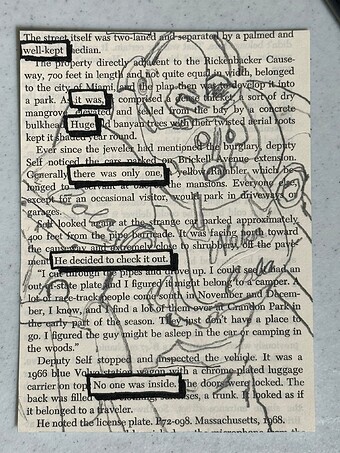 The street itself was two-laned and separated by a palmed and
well-kept median.
The property directly adjacent to the Rickenbacker Cause-
way, 700 feet in length and not quite equal in width, belonged
to the city of Miami, and plan develop it into
a park. As it was, comprised a sort of dry
mangrove and from the bay by a concrete
bulkhead. Huge banyan trees with their twisted aerial roots
kept it shaded year round.
Ever since the jeweler had mentioned the burglary, deputy
Self noticed the cars parked Brickell Avenue extension.
Generally there was only one, yellow Rambler which be-
longed to the mansions. Everyone else,
except for an occasional visitor, would park in driveways or
garages.
Self looked over at the strange car parked approximately
400 feet from the pipe barricade. It was facing north toward
the causeway and extremely close to shrubbery off the pave-
ment. He decided to check it out.
"I cut through the pipes and drove up. I could see it had an
out-of-state plate and I figured it might belong to a camper. A
lot of race-track people come south in November and Decem-
ber, I know, and I find a lot of them over at Grandon Park in
the early part of the season. They just don't have a place to
go. I figured the guy might be asleep in the car or camping in
the woods."
Deputy Self stopped and inspected the vehicle. It was a
1966 blue Volvo station wagon with a chrome-plated luggage
carrier on top. No one was inside. The doors were locked. The
back was filled clothing, suitcases, a trunk. It looked as if
it belonged to a traveler.
He noted the license plate. P72-098. Massachusetts, 1968.